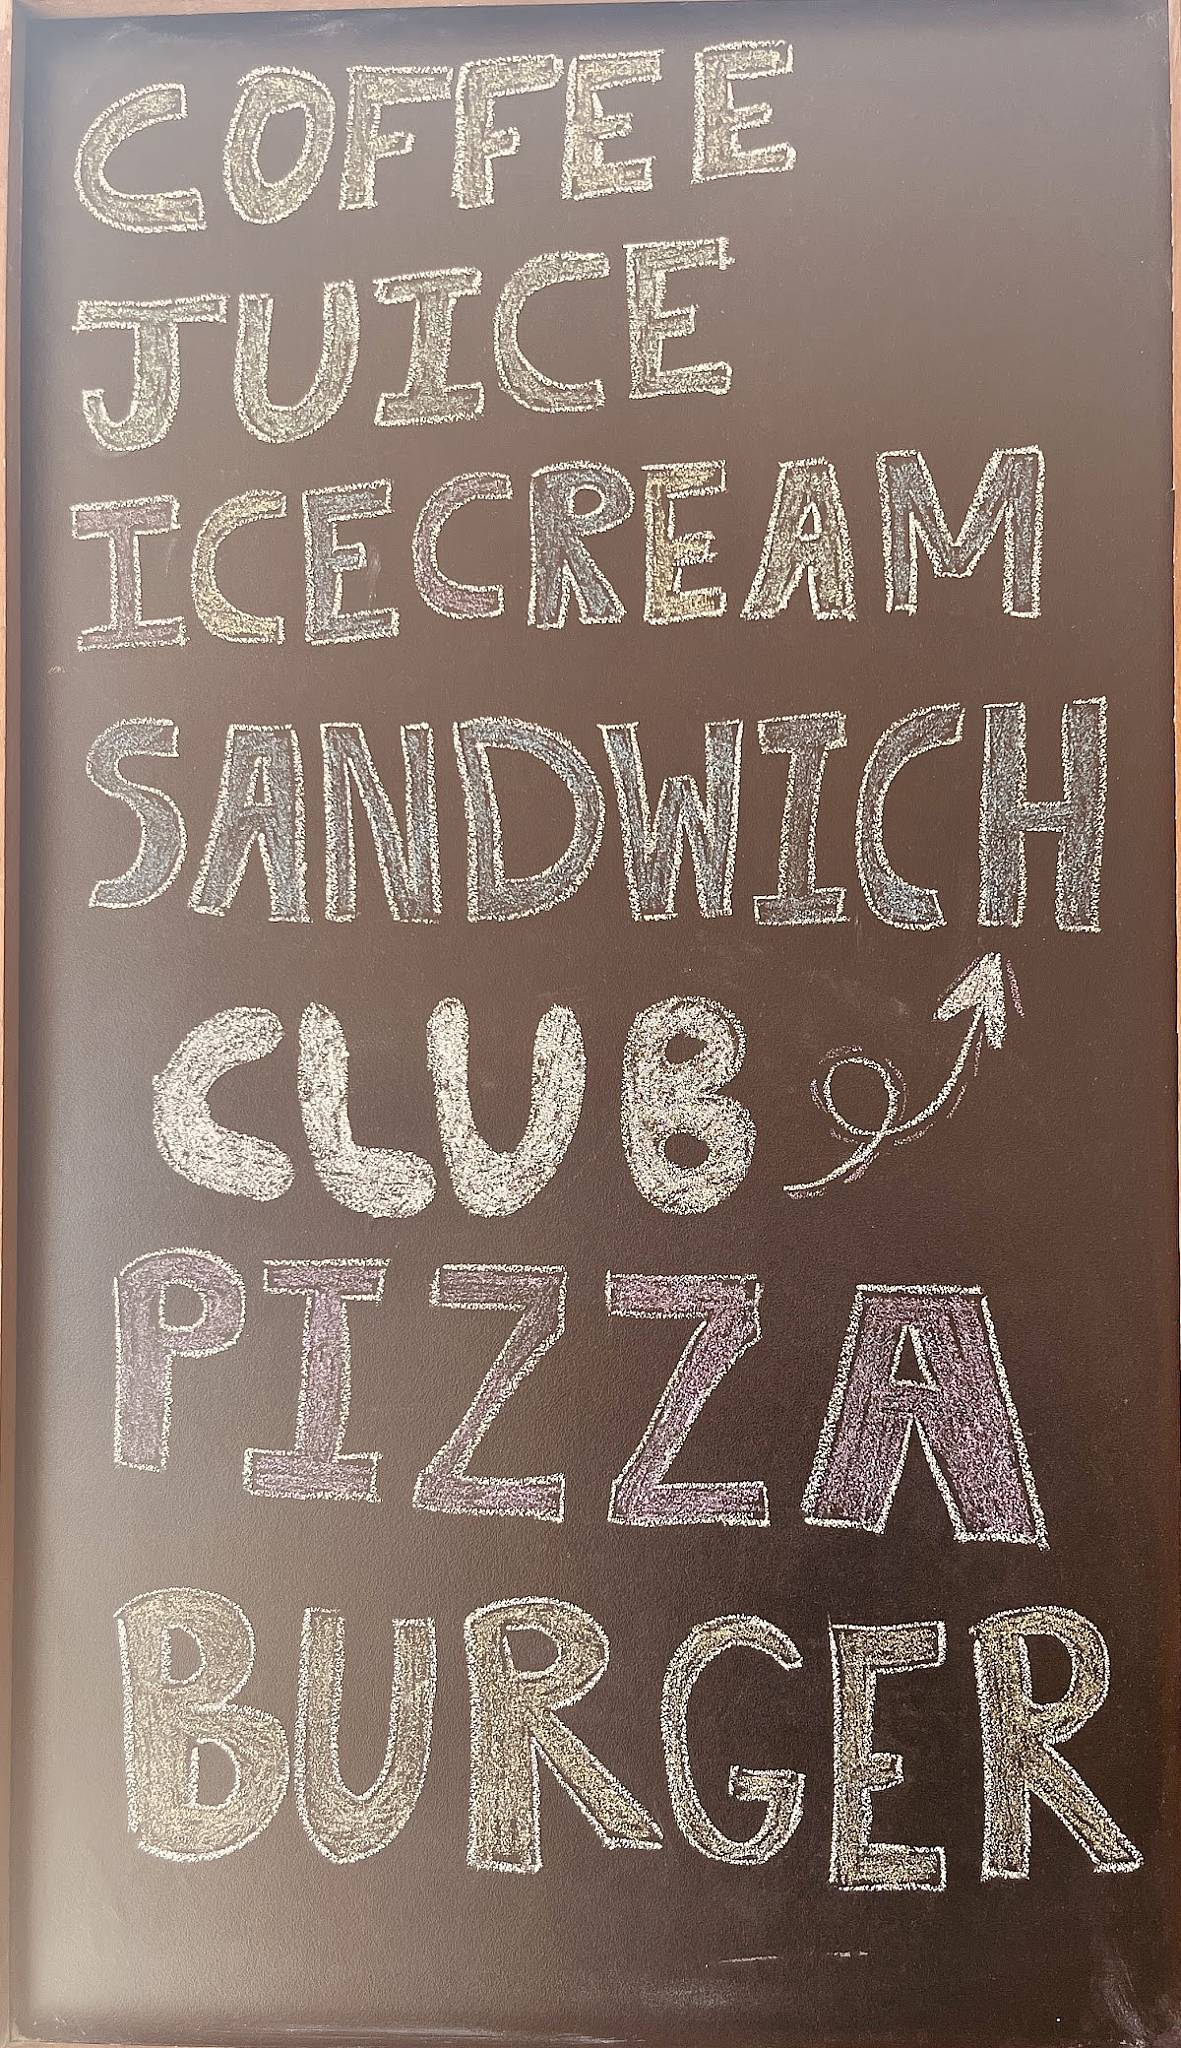 COFFEE
JUICE
ICECREAM
SANDWICH
CLUB
PIZZA
BURGER